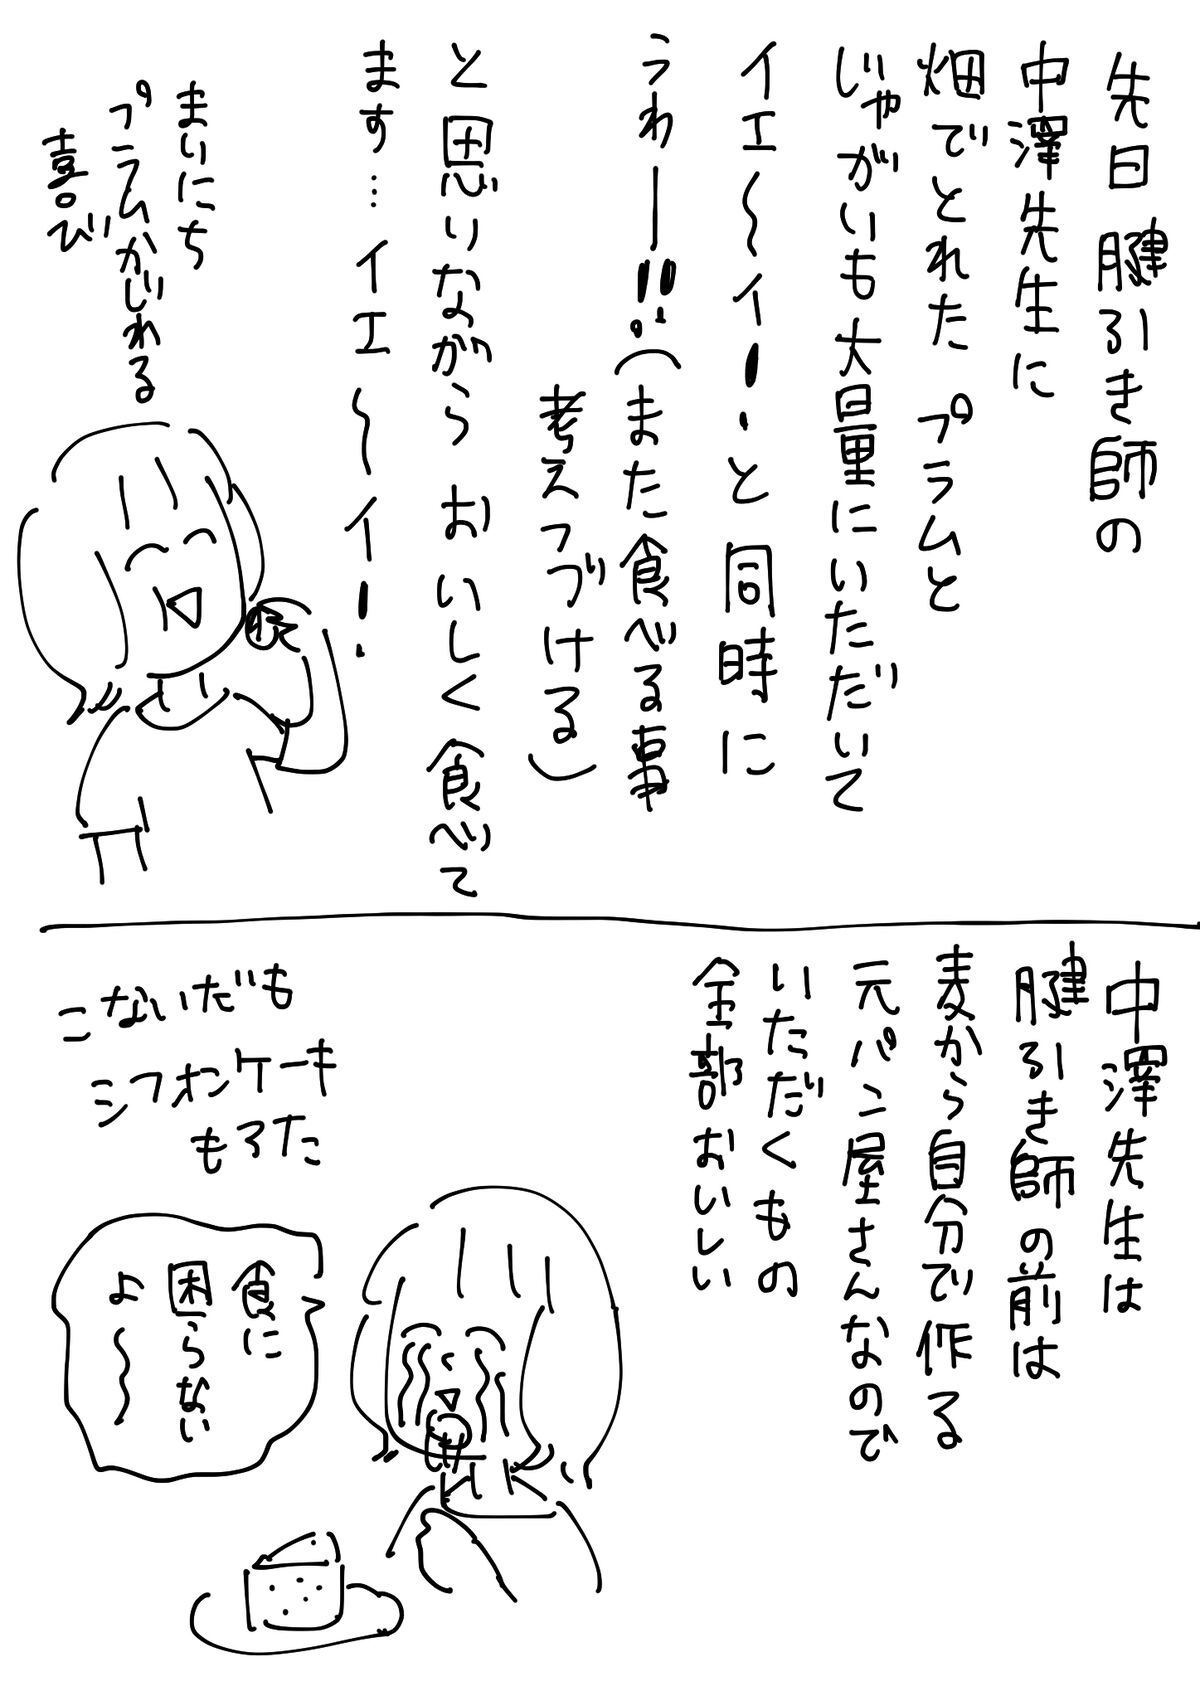 先日 腱引き師の
中澤先生に
畑でとれた プラムと
じゃがいも大量にいただいて
イエ〜イ!と 同時に
うわー!!(また食べる事
考えつづける)
と思いながら おいしく 食べて
ます… イエ〜イ!
まいにち
プラムかじれる
喜び
中澤先生は
腱引き師の前は
麦から自分で作る
元パン屋さんなので
いただくもの
全部おいしい
こないだも
シフォンケーキ
もろた
食に
困らない
よ〜